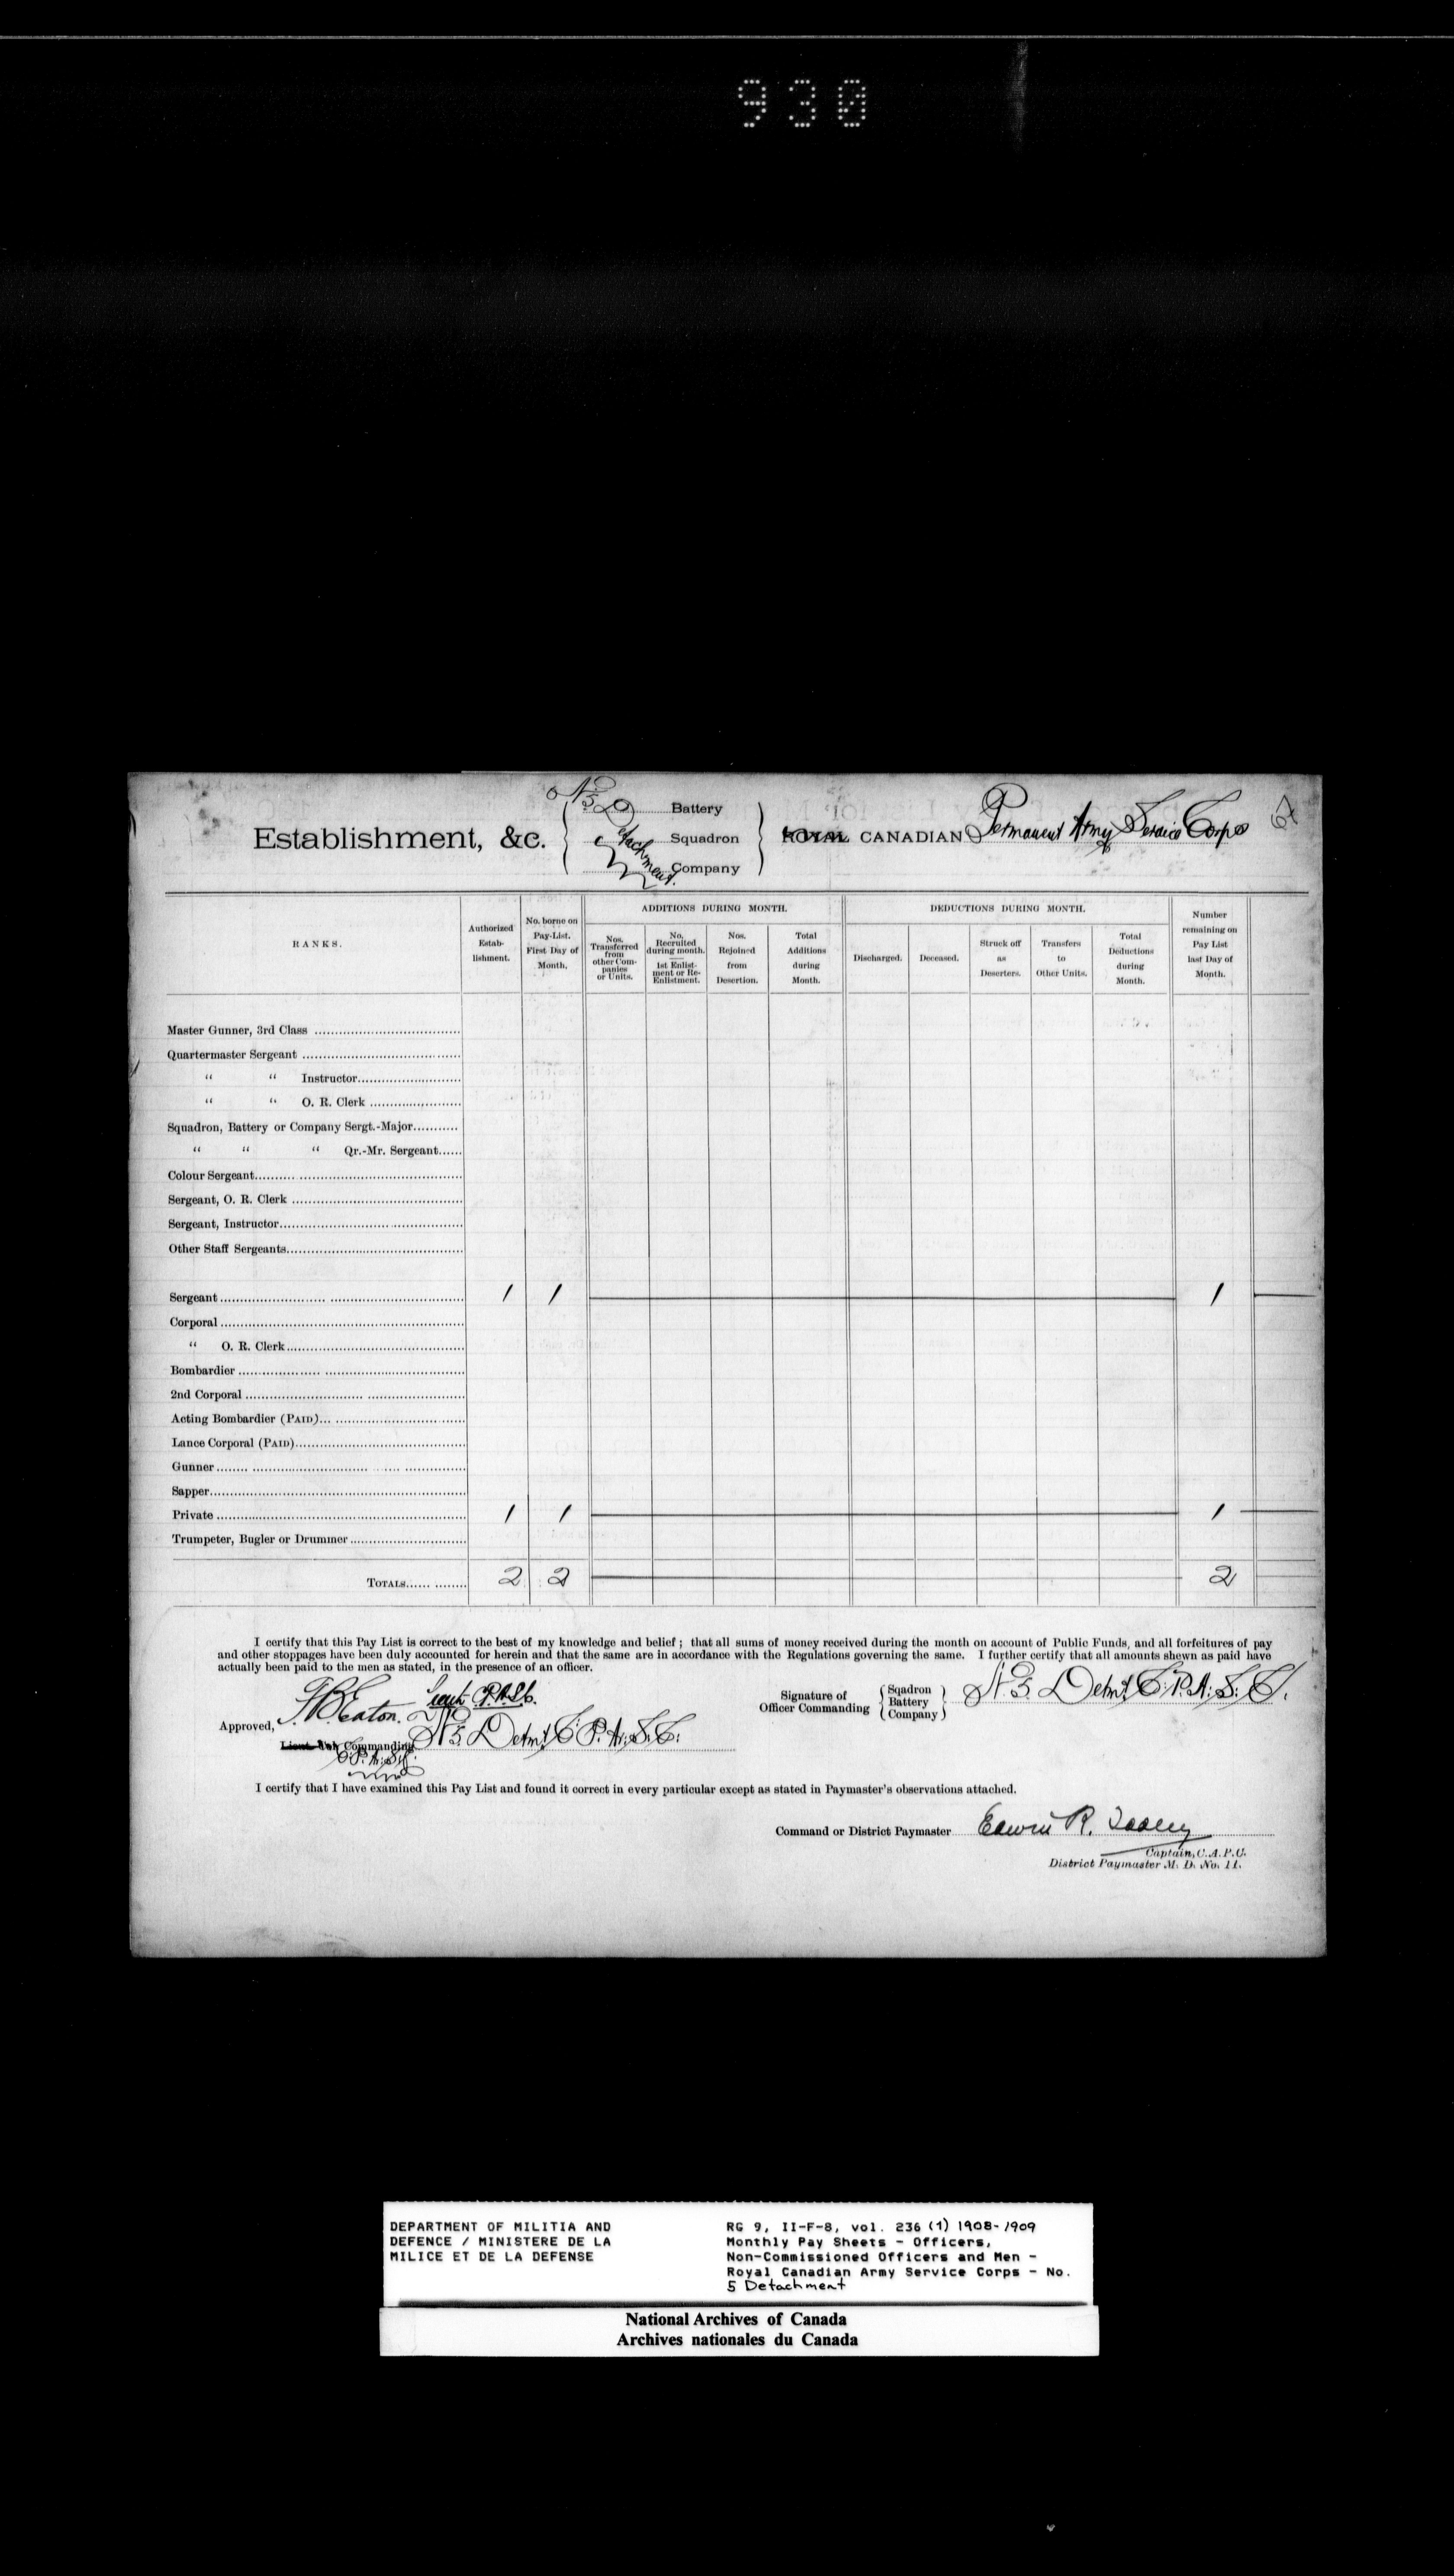 930
No 5 Detachment
Battery
Squadron
Company
Establishment, &c.
ROYAL CANADIAN Permanent Army Service Corps
RANKS.
Authorized Estab-lishment.
No. borne on Pay-List. First Day of Month.
ADDITIONS DURING MONTH.
Nos. Transferred from other Com-panies or Units.
No. Recruited during month. 1st Enlist-ment or Re-Enlistment.
Nos. Rejoined from Desertion.
Total Additions during Month.
DEDUCTIONS DURING MONTH.
Discharged.
Deceased.
Struck off as Deserters.
Transfers to Other Units.
Total Deductions during Month.
Number remaining on Pay List last Day of Month.
Master Gunner, 3rd Class
Quartermaster Sergeant
" " Instructor
" " O. R. Clerk
Squadron, Battery or Company Sergt.-Major
" " " Qr.-Mr. Sergeant
Colour Sergeant
Sergeant, O. R. Clerk
Sergeant, Instructor
Other Staff Sergeants
Sergeant 1 1 1
Corporal
" O. R. Clerk
Bombardier
2nd Corporal
Acting Bombardier (PAID)
Lance Corporal (PAID)
Gunner
Sapper
Private 1 1 1
Trumpeter, Bugler or Drummer
TOTALS 2 2 2
I certify that this Pay List is correct to the best of my knowledge and belief; that all sums of money received during the month on account of Public Funds, and all forfeitures of pay
and other stoppages have been duly accounted for herein and that the same are in accordance with the Regulations governing the same. I further certify that all amounts shewn as paid have
actually been paid to the men as stated, in the presence of an officer.
Signature of Officer Commanding
Sqadron
Battery
Company
No 5 Detmt C. P. A. S. C.
Approved, Eaton.
Lieut-Col Commanding No 5 Detmt C. P. A. S. C.
C. P. A. S. C.
I certify that I have examined this Pay List and found it correct in every particular except as stated in Paymaster's observations attached.
Command or District Paymaster Edwin R.
Captain, C. A. P. C.
District Paymaster M. D. No. 11.
DEPARTMENT OF MILITIA AND
DEFENCE / MINISTERE DE LA
MILICE ET DE LA DEFENSE
RG 9, II-F-8, vol. 236 (1) 1908-1909
Monthly Pay Sheets - Officers,
Non-Commissioned Officers and Men -
Royal Canadian Army Service Corps - No.
5 Detachment
National Archives of Canada
Archives nationales du Canada